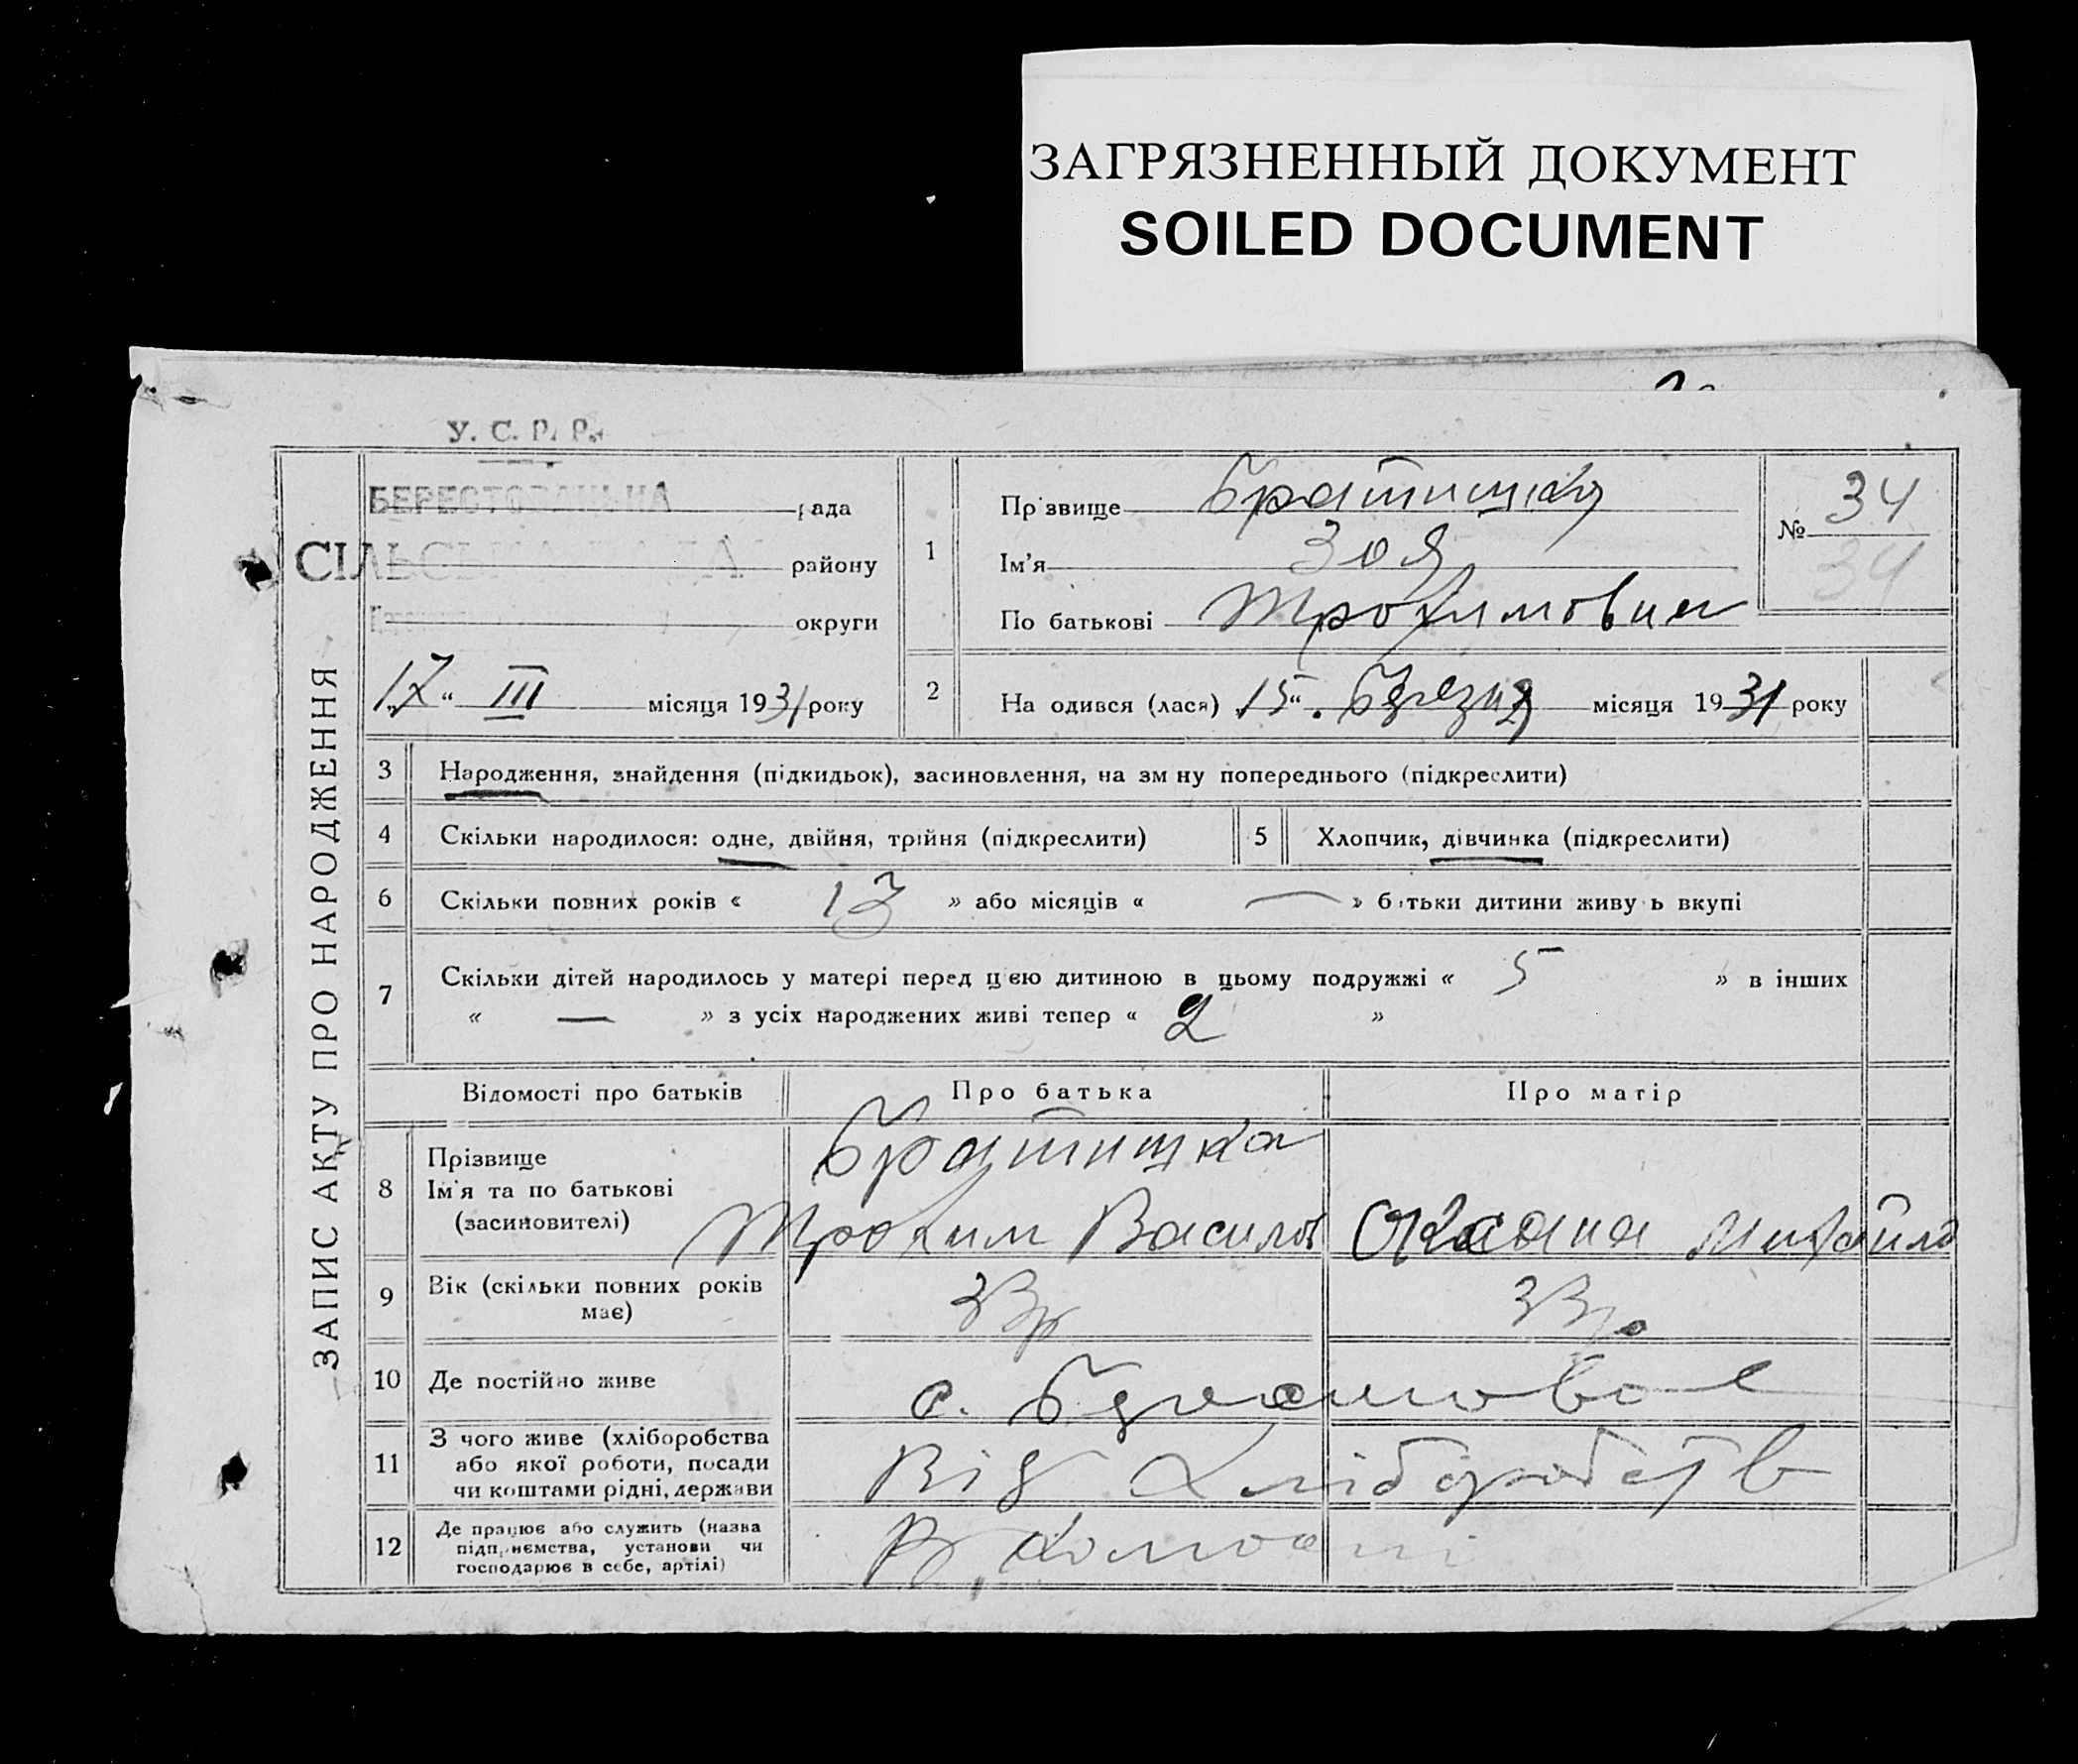 ЗАГРЯЗНЕННЫЙ ДОКУМЕНТ
SOILED DOCUMENT
У. С. Р. Р.
ЗАПИС АКТУ ПРО НАРОДЖЕННЯ
рада
СІЛЬСЬКА РАДА
району
округи
„17“ III місяця 1931 року
1
Прізвище Братишка
Ім’я Зоя
По батькові Трохимовна
№ 34
34
2 На одився (лася) „15“ березня місяця 1931 року
3 Народження, знайдення (підкидьок), засиновлення, на зм ну попереднього (підкреслити)
4 Скільки народилося: одне, двійня, трійня (підкреслити)
5 Хлопчик, дівчинка (підкреслити)
6 Скільки повних років « 13 » або місяців « — » батьки дитини живу ь вкупі
7 Скільки дітей народилось у матері перед цією дитиною в цьому подружжі « 5 » в інших
« — » з усіх народжених живі тепер « 2 »
Відомості про батьків Про батька Про матір
8 Прізвище Братишка
Ім’я та по батькові
(засиновителі) Трохим Васильов Оксана Михайло
9 Вік (скільки повних років
має) 33р 33р.
10 Де постійно живе с.
11 З чого живе (хліборобства
або якої роботи, посади
чи коштами рідні, держави
Від хліборобств
12 Де працює або служить (назва
підприємства, установи чи
господарює в себе, артілі)
В